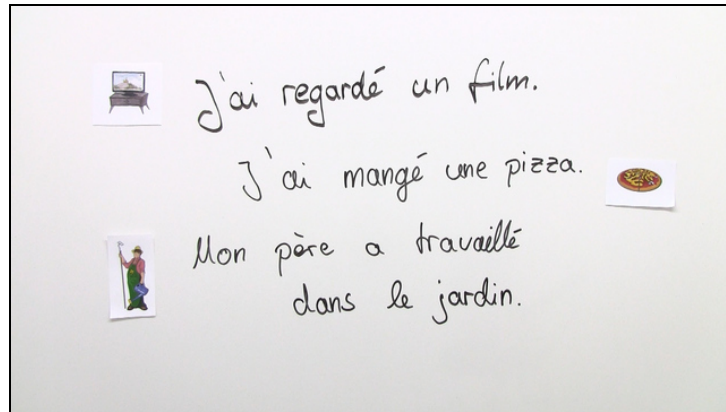 J'ai regardé un film.
J'ai mangé une pizza.
Mon père a travaillé
dans le jardin.